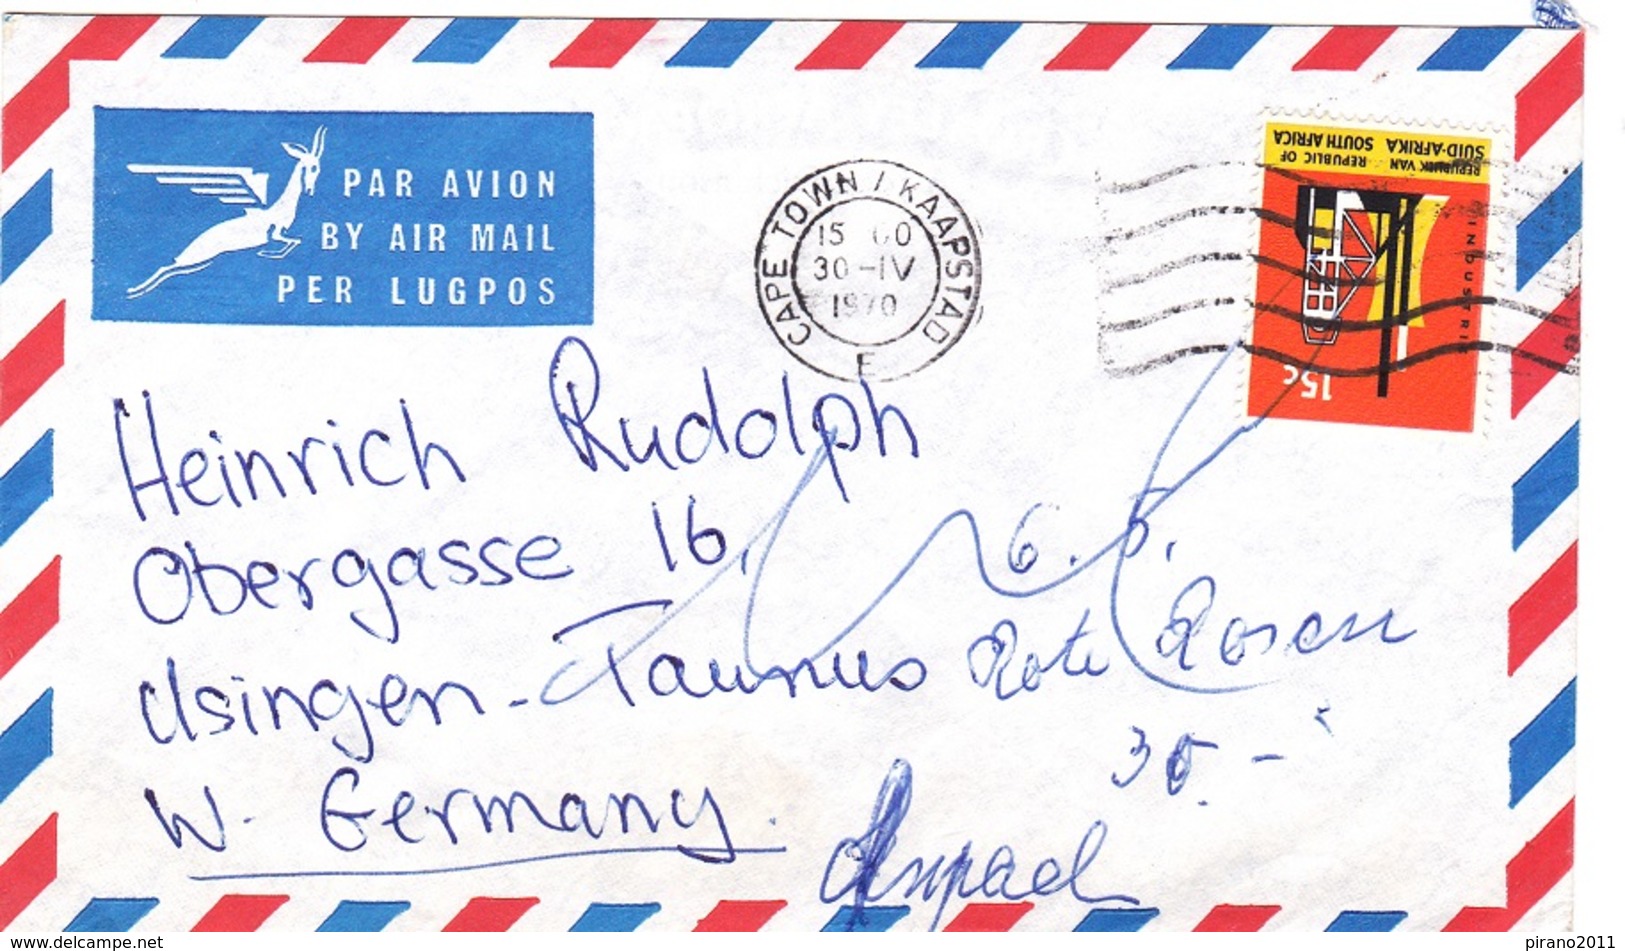 PAR AVION
BY AIR MAIL
PER LUGPOS
CAPE TOWN / KAAPSTAD
15 00
30-IV
1970
E
REPUBLIEK VAN SUID-AFRIKA
REPUBLIC OF SOUTH AFRICA
INDUSTRIE
15c
Heinrich Rudolph
Obergasse 16,
Usingen-Taunus
W. Germany.
6. 5.
Rote Rosen
30.-
delcampe.net
pirano2011